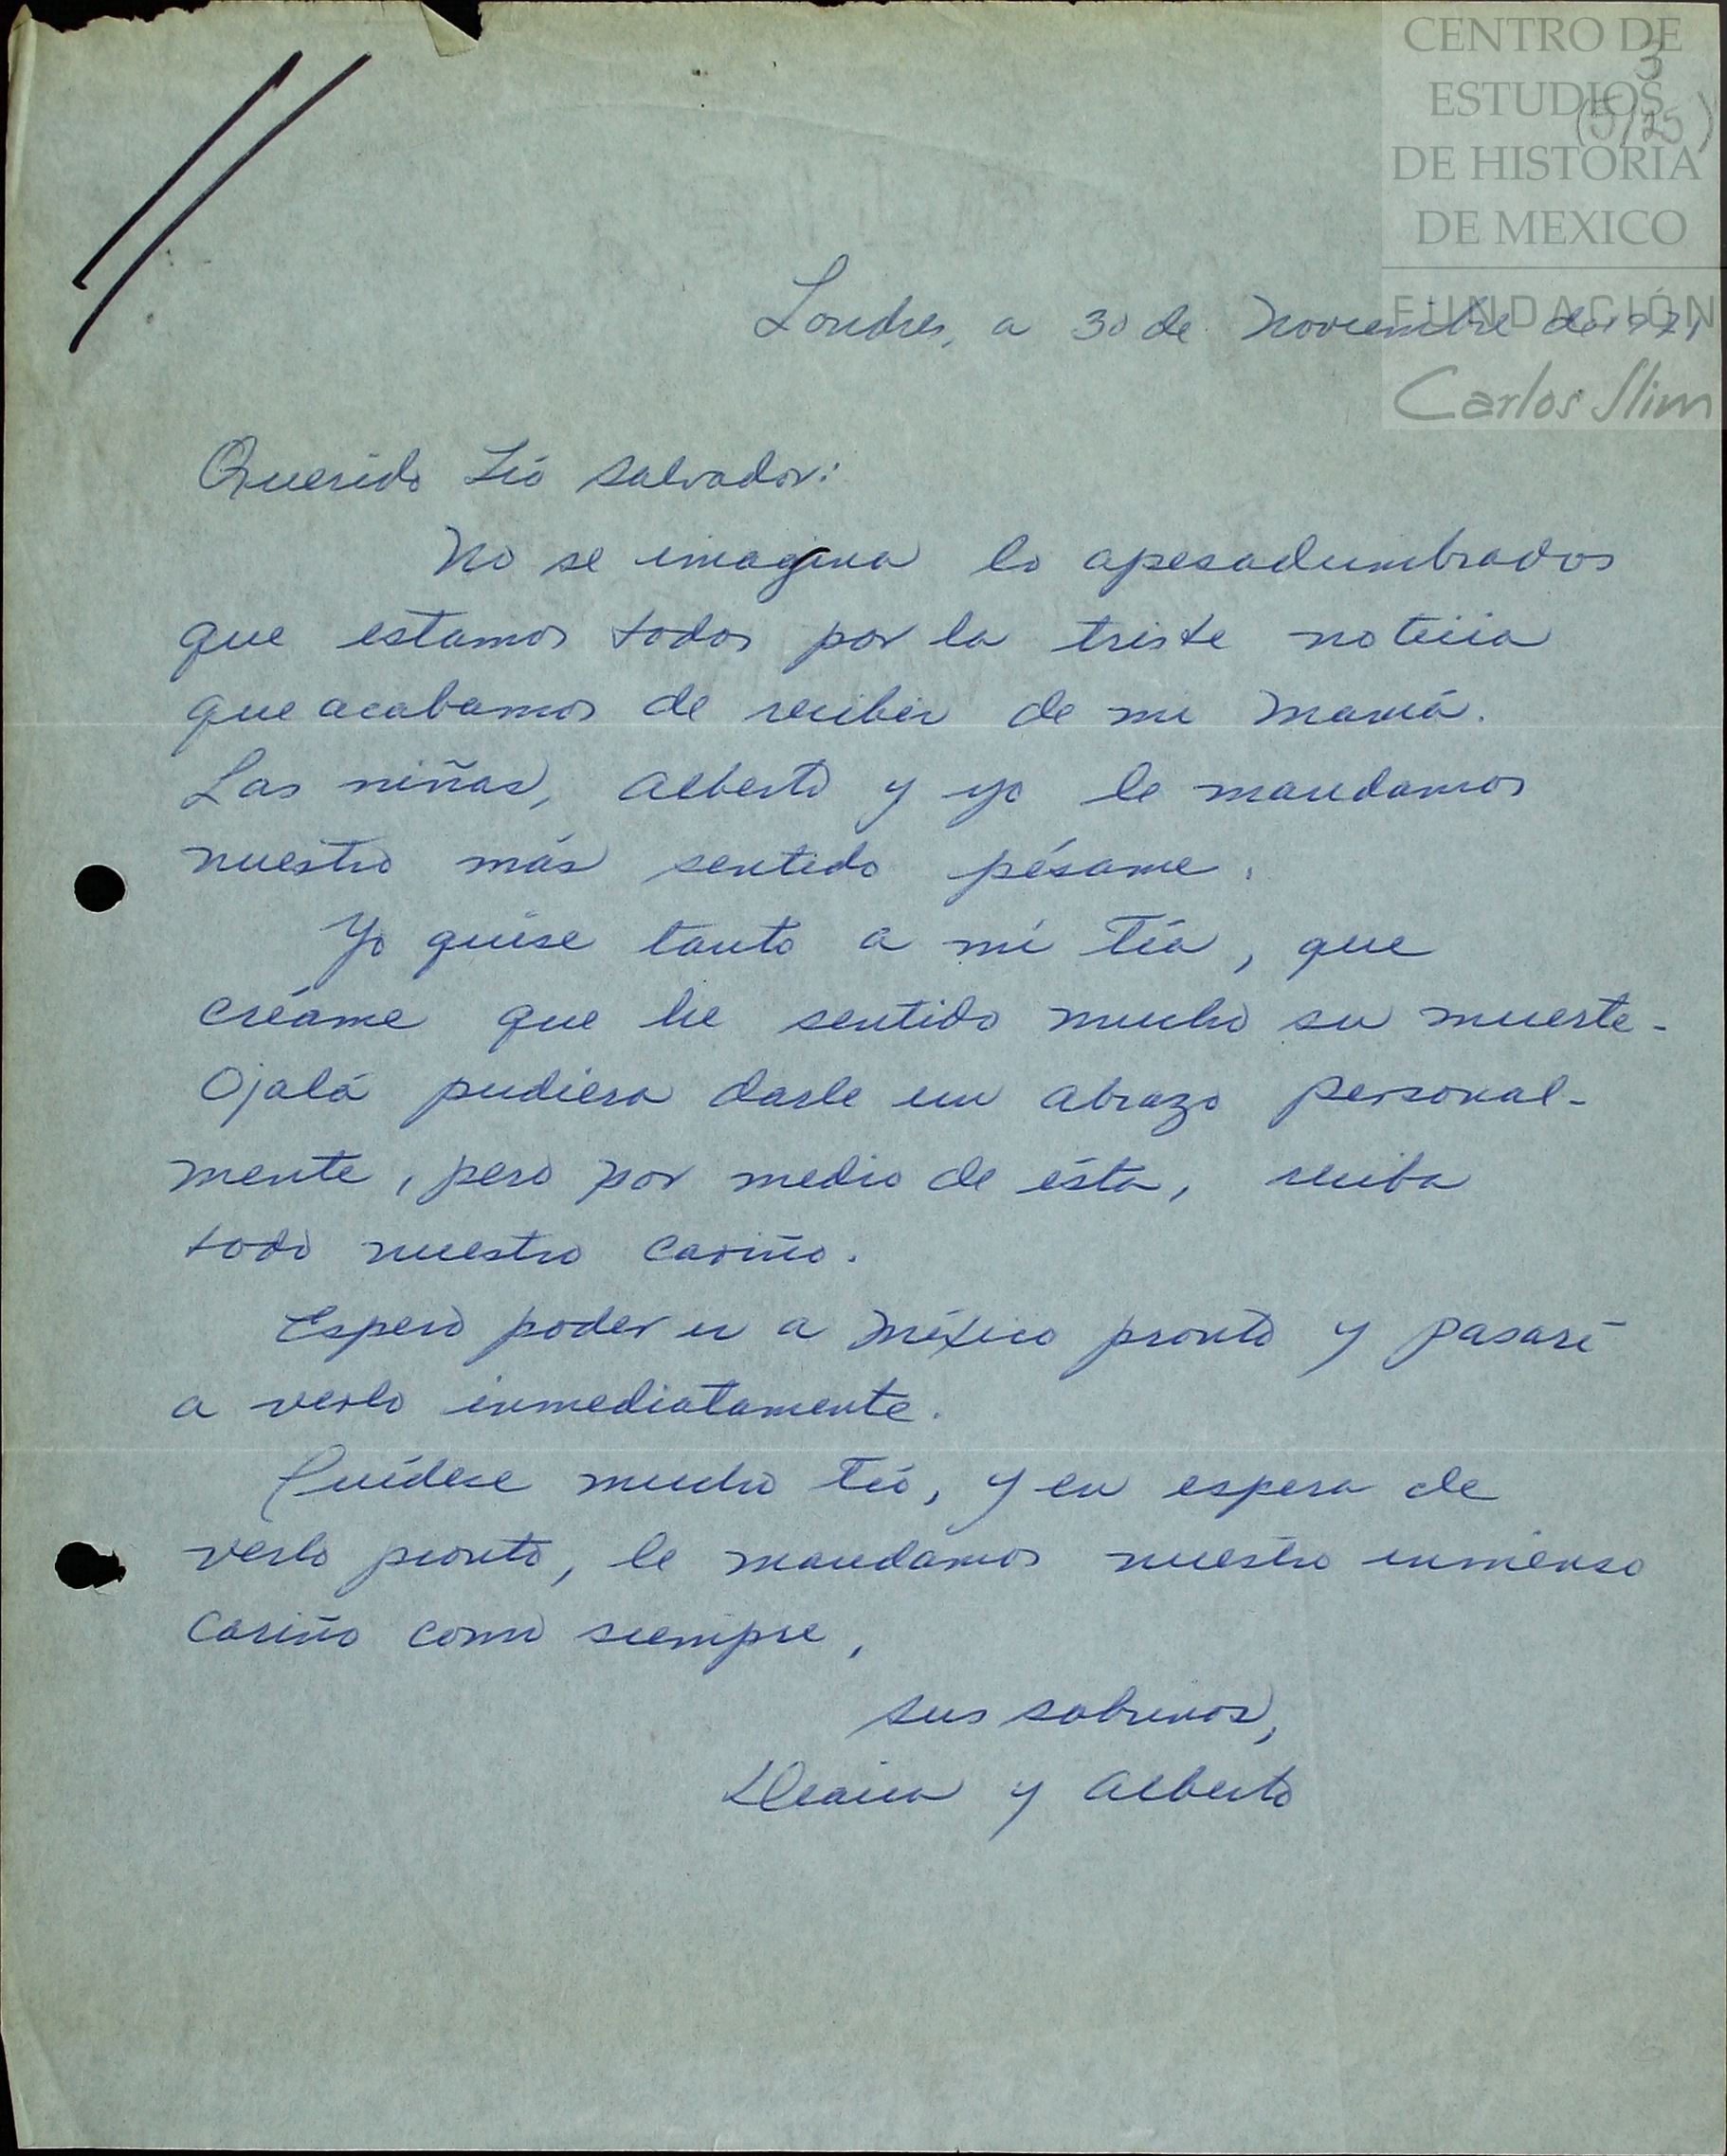 CENTRO DE
ESTUDIOS
DE HISTORIA
DE MEXICO
FUNDACIÓN
Carlos Slim
3
(5/25)
Londres, a 30 de Noviembre de 1971
Querido Tío Salvador:
No se imagina lo apesadumbrados
que estamos todos por la triste noticia
que acabamos de recibir de mi mamá.
Las niñas, Alberto y yo le mandamos
nuestro más sentido pésame.
Yo quise tanto a mi tía, que
créame que he sentido mucho su muerte.
Ojalá pudiera darle un abrazo personal-
mente, pero por medio de ésta, reciba
todo nuestro cariño.
Espero poder ir a México pronto y pasaré
a verlo inmediatamente.
Cuídese mucho tío, y en espera de
verlo pronto, le mandamos nuestro inmenso
cariño como siempre,
sus sobrinos,
y Alberto